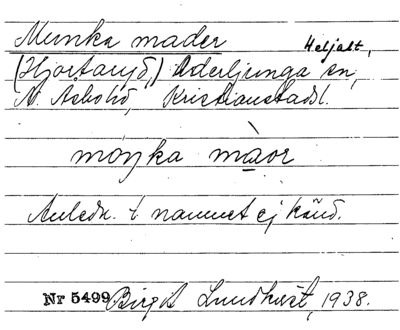 Munka mader
Heljalt,
(Hjortaryd,) Oderljunga sn,
N. Åsbo hd, Kristianstads l.
moŋka màor
Anledn. t. namnet ej känd.
Nr 5499 Birgit Lundkvist, 1938.